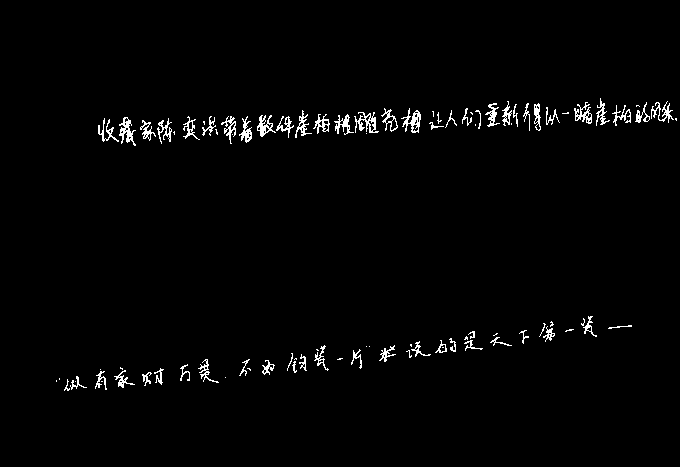 收藏家陈变洪带着数件崖柏根雕亮相 让人们重新得以一睹崖柏的风采.
"纵有家财万贯.不如钧瓷一片"栏说的是天下第一瓷—